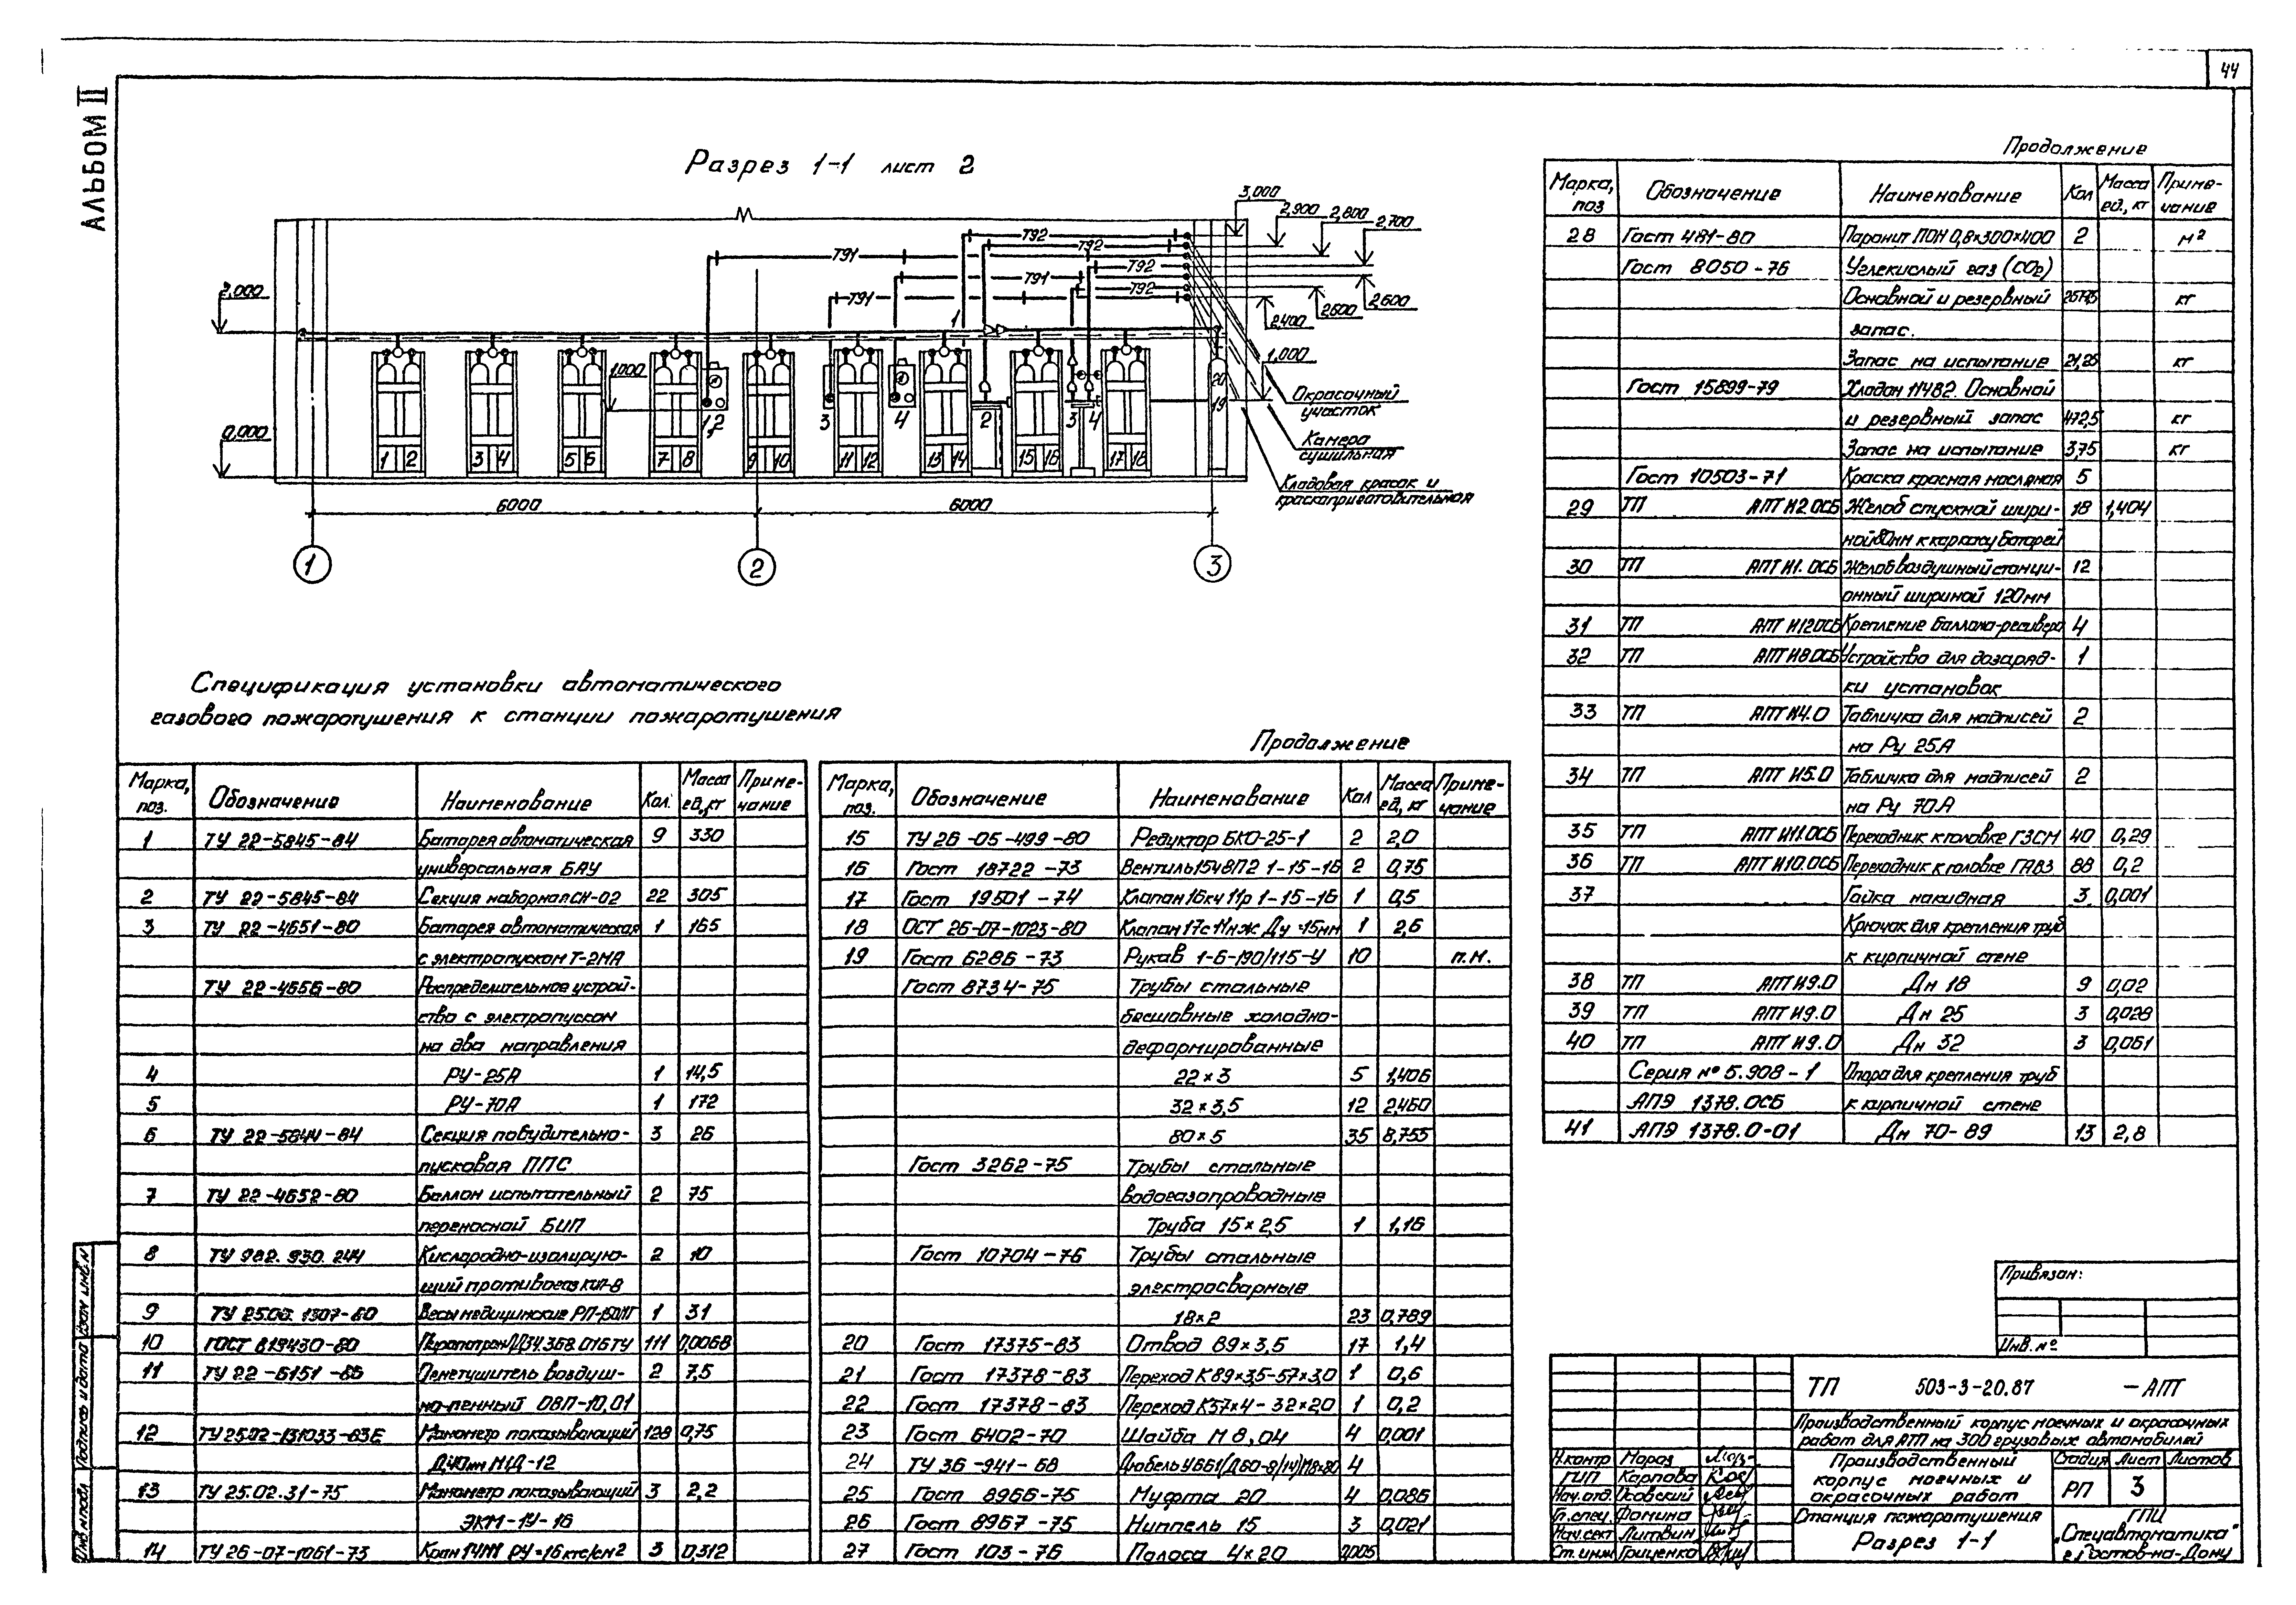 44
АЛЬБОМ II
Разрез 1-1 лист 2
3,000
2,900
2,800
2,700
2,600
2,600
2,400
2,000
1,000
1,000
0,000
Т92
Т92
Т91
Т92
Т91
Т92
Т91
1
1,2
3
4
2
3
4
20
19
1 2
3 4
5 6
7 8
9 10
11 12
13 14
15 16
17 18
Окрасочный
участок
Камера
сушильная
Кладовая красок и
краскоприготовительная
6000
6000
1
2
3
Спецификация установки автоматического
газового пожаротушения к станции пожаротушения
Марка, поз. Обозначение Наименование Кол. Масса ед., кг Примечание
1 ТУ 22-5845-84 Батарея автоматическая 9 330
универсальная БАУ
2 ТУ 22-5845-84 Секция наборная СН-02 22 305
3 ТУ 22-4651-80 Батарея автоматическая 1 165
с электропуском Т-2МА
ТУ 22-4656-80 Распределительное устрой-
ство с электропуском
на два направления
4 РУ-25А 1 14,5
5 РУ-70А 1 172
6 ТУ 22-5844-84 Секция побудительно- 3 26
пусковая ППС
7 ТУ 22-4652-80 Баллон испытательный 2 75
переносной БИП
8 ТУ 982. 930. 244 Кислородно-изолирую- 2 10
щий противогаз КИП-8
9 ТУ 25.06. 1307-60 Весы медицинские РП-150МГ 1 31
10 ГОСТ 819430-80 111 0,0068
11 ТУ 22-6151-86 Огнетушитель воздуш- 2 7,5
но-пенный ОВП-10,01
12 ТУ25.02-131033-83Е Манометр показывающий 128 0,75
Д40мм МТД-12
13 ТУ 25.02.31-75 Манометр показывающий 3 2,2
ЭКМ-1У-16
14 ТУ 26-07-1061-73 Кран 14М1 РУ=16 кгс/см2 3 0,312
Продолжение
Марка, поз. Обозначение Наименование Кол Масса ед, кг Приме-чание
15 ТУ 26-05-499-80 Редуктор БКО-25-1 2 2,0
16 Гост 18722-73 Вентиль 15ч8П2 1-15-16 2 0,75
17 Гост 19501-74 Клапан 16кч 11р 1-15-16 1 0,5
18 ОСТ 26-07-1023-80 Клапан 17с11нж Ду-15мм 1 2,6
19 Гост 6286-73 Рукав 1-6-190/115-У 10 п.м.
Гост 8734-75 Трубы стальные
бесшовные холодно-
деформированные
22×3 5 1,406
32×3,5 12 2,460
80×5 35 8,755
Гост 3262-75 Трубы стальные
водогазопроводные
Труба 15×2,5 1 1,16
Гост 10704-76 Трубы стальные
электросварные
18×2 23 0,789
20 Гост 17375-83 Отвод 89×3,5 17 1,4
21 Гост 17378-83 Переход К89×3,5-57×3,0 1 0,6
22 Гост 17378-83 Переход К57×4-32×2,0 1 0,2
23 Гост 6402-70 Шайба М8,04 4 0,001
24 ТУ 36-941-68 4
25 Гост 8966-75 Муфта 20 4 0,086
26 Гост 8967-75 Ниппель 15 3 0,021
27 Гост 103-76 Полоса 4×20 0,005
Продолжение
Марка, поз Обозначение Наименование Кол Масса ед., кг Приме-чание
28 Гост 481-80 Паронит ПОН 0,8×300×400 2 м²
Гост 8050-76 Углекислый газ (СО2)
Основной и резервный кг
запас.
Запас на испытание 21,25 кг
Гост 15899-79 Хладон 114В2. Основной
и резервный запас 472,5 кг
Запас на испытание 3,75 кг
Гост 10503-71 Краска красная масляная 5
29 ТП АПТ И2.0СБ Желоб спускной шири- 18 1,404
ной 80мм к каркасу батарей
30 ТП АПТ И1.0СБ Желоб воздушный станци- 12
онный шириной 120мм
31 ТП АПТ И12.0СБ Крепление баллона-ресивера 4
32 ТП АПТ И8.0СБ Устройство для дозаряд- 1
ки установок
33 ТП АПТ И4.0 Табличка для надписей 2
на Ру 25А
34 ТП АПТ И5.0 Табличка для надписей 2
на Ру 70А
35 ТП АПТ И11.0СБ Переходник к головке ГЗСМ 40 0,29
36 ТП АПТ И10.0СБ Переходник к головке ГАВЗ 88 0,2
37 Гайка накидная 3 0,001
Крючок для крепления труб
к кирпичной стене
38 ТП АПТ И9.0 Дн 18 9 0,02
39 ТП АПТ И9.0 Дн 25 3 0,028
40 ТП АПТ И9.0 Дн 32 3 0,061
Серия № 5.908-1 Опора для крепления труб
АПЭ 1378.0СБ к кирпичной стене
41 АПЭ 1378.0-01 Дн 70-89 13 2,8
Привязан:
Инв. №
ТП 503-3-20.87 -АПТ
Производственный корпус моечных и окрасочных
работ для АТП на 300 грузовых автомобилей
Н.контр Мороз
ГИП Карпова
Нач.отд. Осовский
Гл.спец. Фомина
Нач.сект Литвин
Ст.инж Гриценко
Производственный
корпус моечных и
окрасочных работ
Стадия Лист Листов
РП 3
Станция пожаротушения
Разрез 1-1
ГПИ
„Спецавтоматика"
г.Ростов-на-Дону
Инв.№подл Подпись и дата Взам инв.№